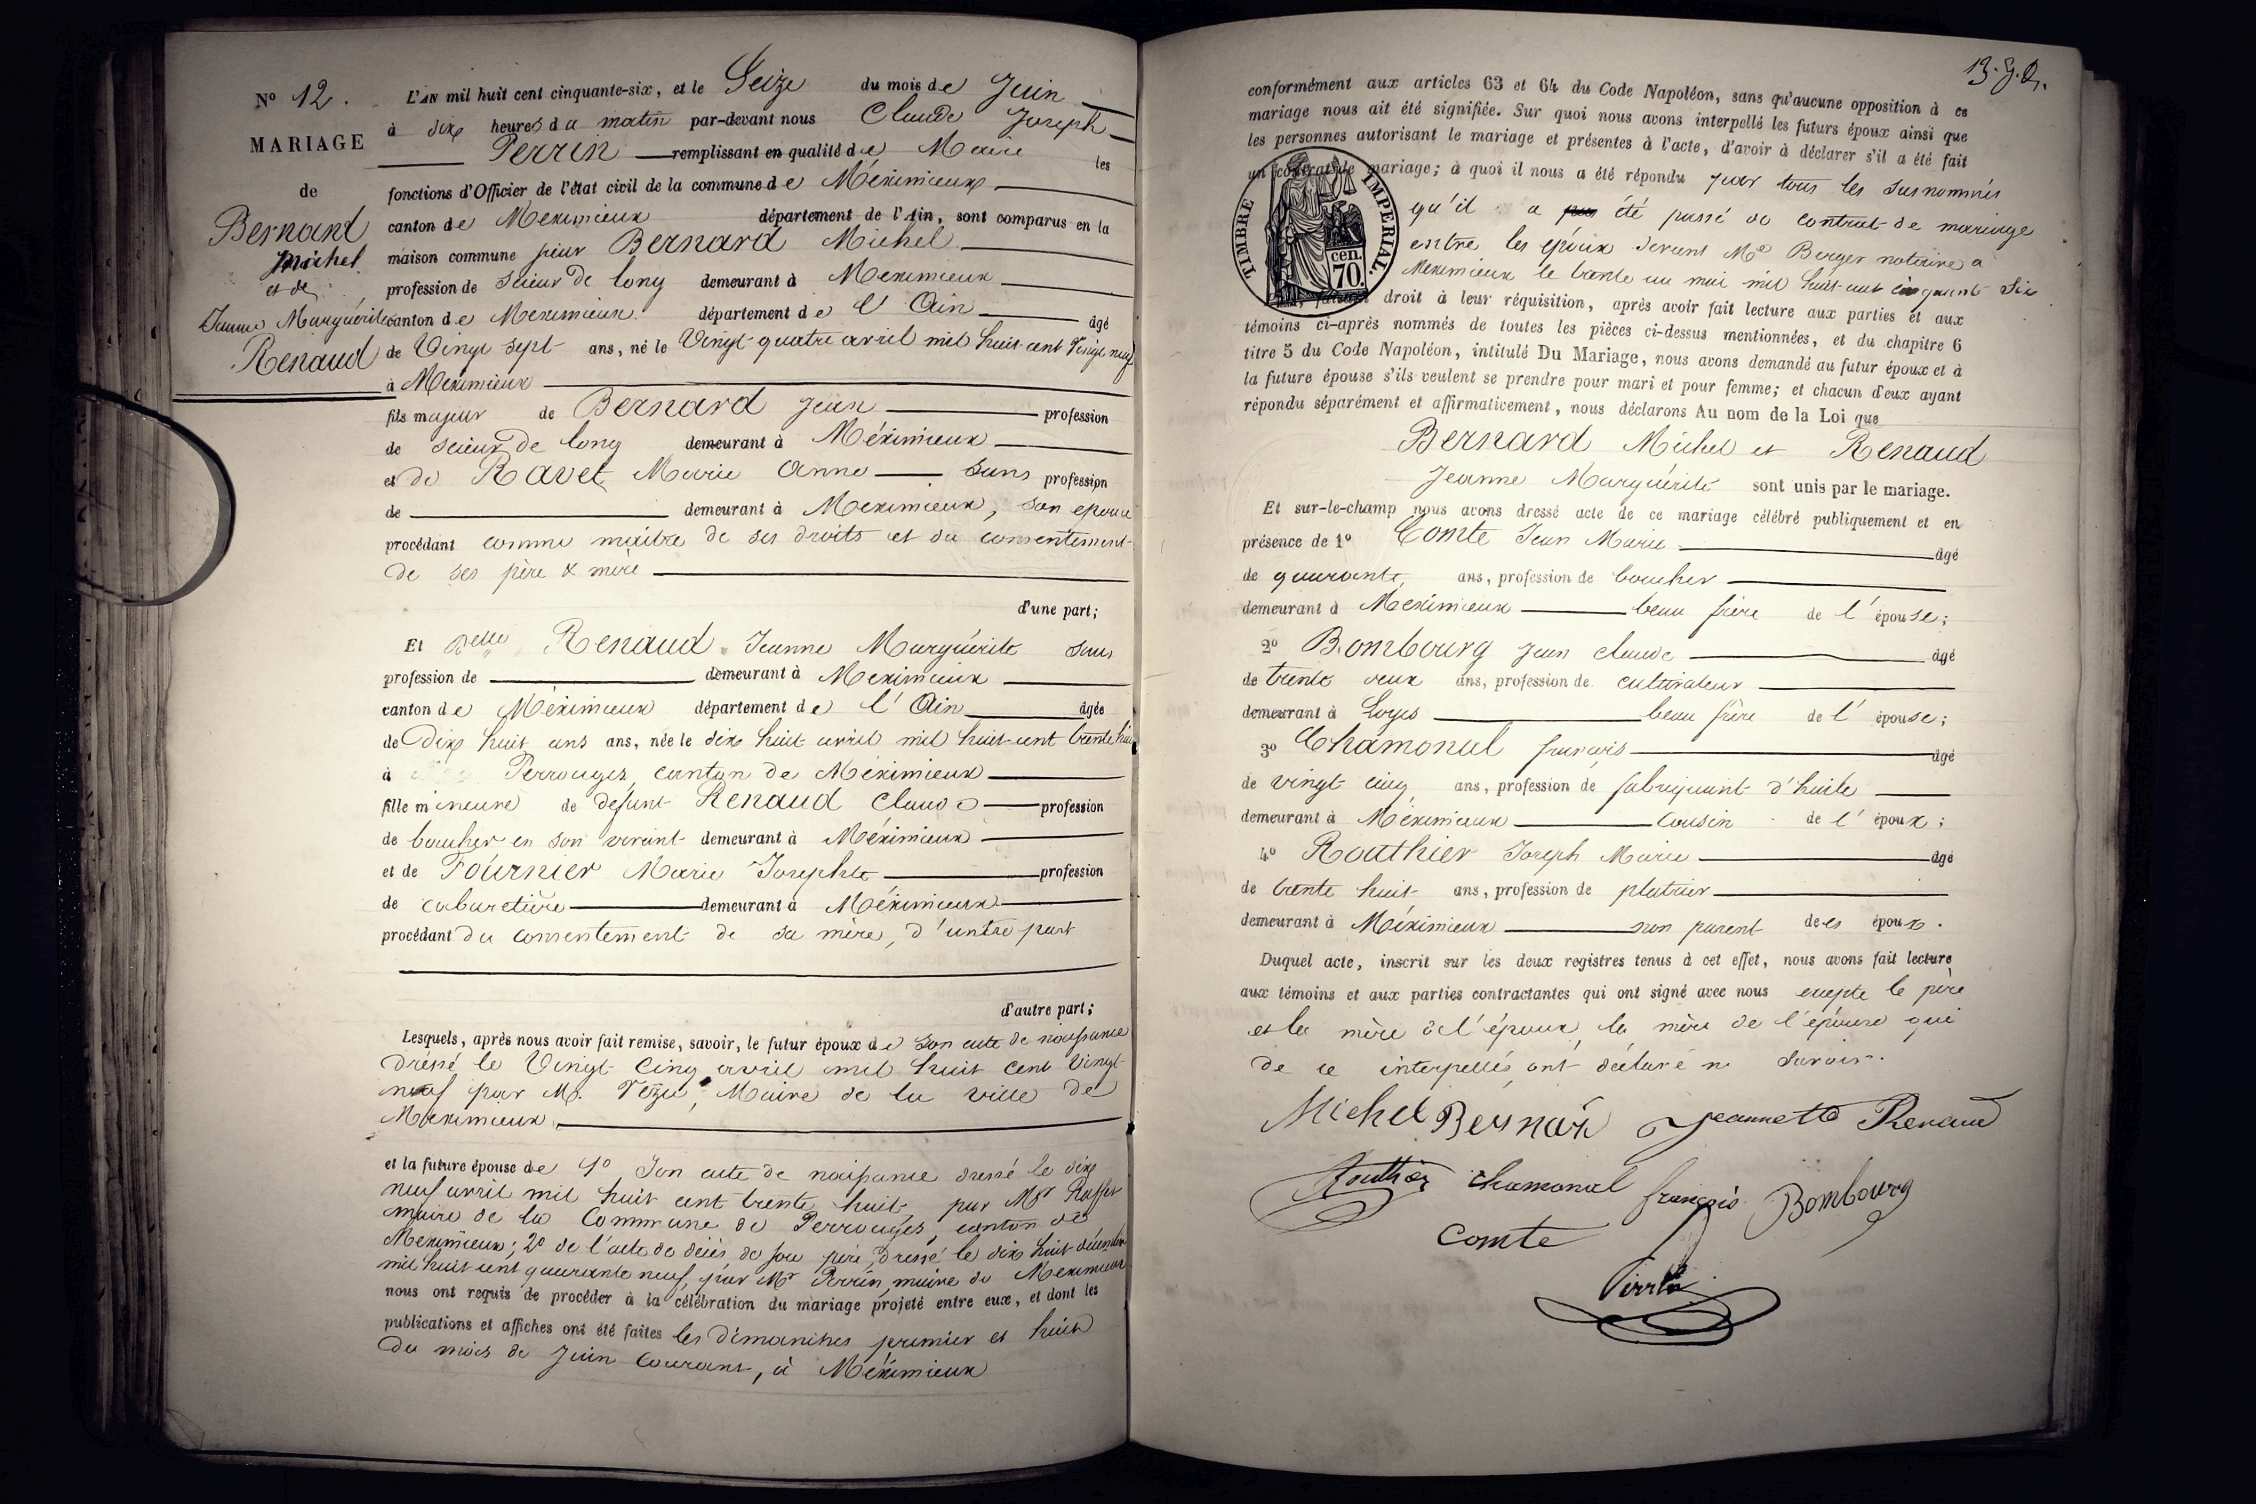 N° 12.
MARIAGE
de
Bernard
Michel
et de
Jeanne Marguérite
Renaud
L'AN mil huit cent cinquante-six, et le Seize du mois de Juin
à dix heures du matin par-devant nous Claude Joseph
Perrin remplissant en qualité de Maire les
fonctions d'Officier de l'état civil de la commune de Méximieux
canton de Meximieux département de l'Ain, sont comparus en la
maison commune sieur Bernard Michel
profession de scieur de long demeurant à Meximieux
canton de Meximieux département de l'Ain âgé
de Vingt sept ans, né le Vingt quatre avril mil huit cent Vingt neuf
à Meximieux
fils majeur de Bernard Jean profession
de scieur de long demeurant à Méximieux
et de Ravet Marie Anne sans profession
de demeurant à Meximieux, son epouse
procédant comme maitre de ses droits et du consentement
de ses père & mère
d'une part;
Et Delle Renaud Jeanne Marguérite sans
profession de demeurant à Meximieux
canton de Méximieux département de l'Ain âgée
de Dix huit ans ans, née le dix huit avril mil huit cent trente huit
à Perrouges, canton de Méximieux
fille mineure de défunt Renaud Claude profession
de boucher en son vivant demeurant à Méximieux
et de Fournier Marie Josephte profession
de cabaretière demeurant à Méximieux
procédant du consentement de sa mère, d'autre part
d'autre part;
Lesquels, après nous avoir fait remise, savoir, le futur époux de son acte de naissance
dressé le Vingt Cinq avril mil huit cent Vingt
neuf par Mr. Vezu, Maire de la ville de
Meximieux
et la future épouse de 1° Son acte de naissance dressé le dix
neuf avril mil huit cent trente huit, par Mr
maire de la Commune de Perrouges, canton de
Meximieux; 2° de l'acte de décès de son père, dressé le dix huit décembre
mil huit cent quarante neuf, par Mr Perrin, maire de Meximieux
nous ont requis de procéder à la célébration du mariage projeté entre eux, et dont les
publications et affiches ont été faites les dimanches premier et huit
du mois de Juin courant, à Méximieux
conformément aux articles 63 et 64 du Code Napoléon, sans qu'aucune opposition à ce
mariage nous ait été signifiée. Sur quoi nous avons interpellé les futurs époux ainsi que
les personnes autorisant le mariage et présentes à l'acte, d'avoir à déclarer s'il a été fait
un contrat de mariage; à quoi il nous a été répondu par tous les susnommés
qu'il a pas été passé de contrat de mariage
entre les époux devant Me Berger notaire a
Meximieux le trente un mai mil huit cent cinquante Six
TIMBRE IMPERIAL.
cen.
70.
droit à leur réquisition, après avoir fait lecture aux parties et aux
témoins ci-après nommés de toutes les pièces ci-dessus mentionnées, et du chapitre 6
titre 5 du Code Napoléon, intitulé Du Mariage, nous avons demandé au futur époux et à
la future épouse s'ils veulent se prendre pour mari et pour femme; et chacun d'eux ayant
répondu séparément et affirmativement, nous déclarons Au nom de la Loi que
Bernard Michel et Renaud
Jeanne Marguérite sont unis par le mariage.
Et sur-le-champ nous avons dressé acte de ce mariage célébré publiquement et en
présence de 1° Comte Jean Marie âgé
de quarante ans, profession de boucher
demeurant à Meximieux beau frère de l'épouse;
2° Bombourg Jean Claude âgé
de trente deux ans, profession de cultivateur
demeurant à Loyes beau frère de l'épouse;
3° Chamonal françois âgé
de vingt cinq ans, profession de fabriquant d'huile
demeurant à Méximieux cousin de l'époux;
4° Routhier Joseph Marie âgé
de trente huit ans, profession de platrier
demeurant à Méximieux non parent des époux.
Duquel acte, inscrit sur les deux registres tenus à cet effet, nous avons fait lecture
aux témoins et aux parties contractantes qui ont signé avec nous excepté le père
et la mère de l'époux, la mère de l'épouse qui
de ce interpellés, ont déclaré ne savoir.
Michel Bernard Jeannette Renaud
Routhier chamonal françois Bombourg
Comte
Perrin